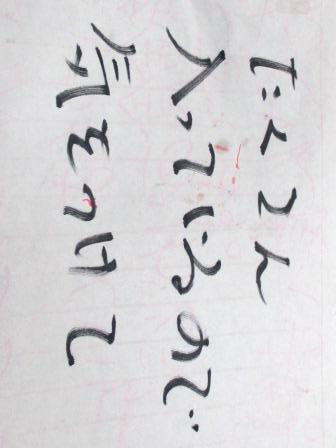 たくさん
入っているので
気をつけて